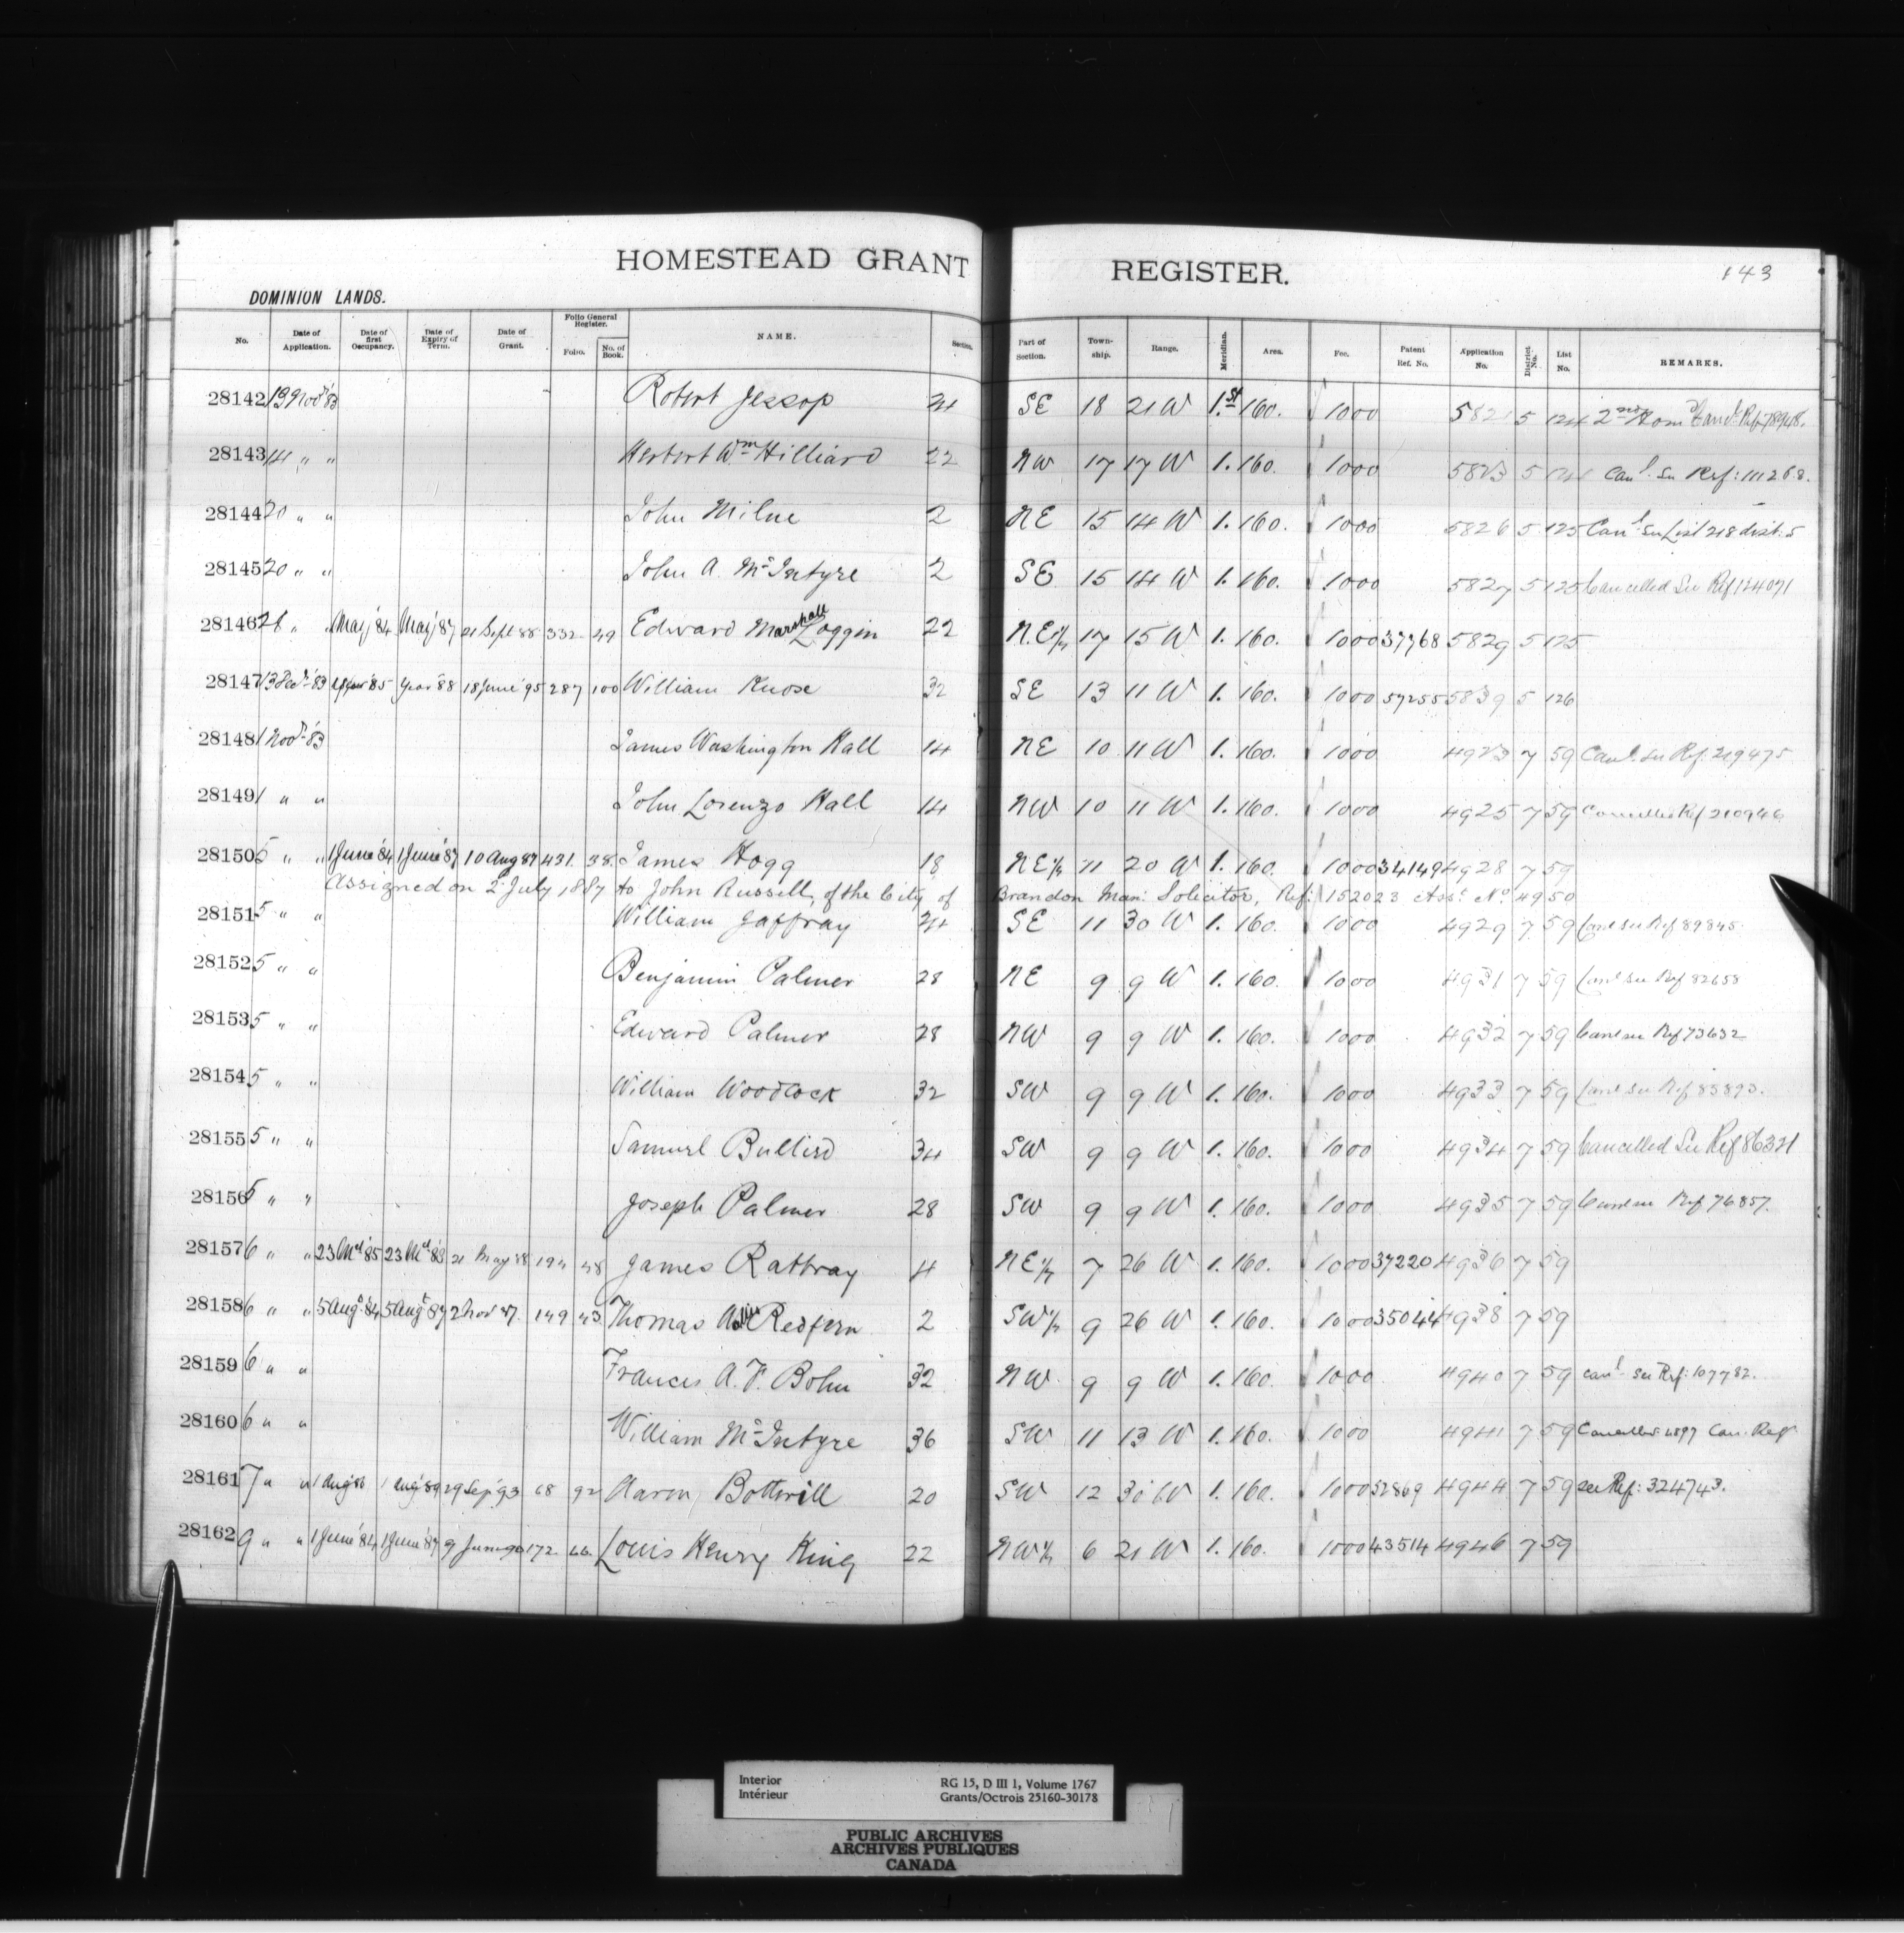 HOMESTEAD GRANT REGISTER.
143
DOMINION LANDS.
No. Date of Application. Date of first Occupancy. Date of Expiry of Term. Date of Grant. Folio General Register. Folio. No. of Book. NAME. Section. Part of Section. Township. Range. Meridian. Area. Fee. Patent Ref. No. Application No. District No. List No. REMARKS.
28142 13 Nov '83 Robert Jessop SE 18 21 W 1.st 160. 1000 5821 5 124 2nd Hom
28143 14 " " Herbert Wm Hilliard 22 NW 17 17 W 1. 160. 1000 5823 5 Canl. See Ref: 111268.
28144 20 " " John Milne 2 NE 15 14 W 1. 160. 1000 5826 5 125 Canl See List 218 dist. 5
28145 20 " " John A. McIntyre 2 SE 15 14 W 1. 160. 1000 5827 5 125 Cancelled See Ref 124071
28146 26 " " May '84 May '87 21 Sept 88 332 49 Edward Marshall Loggin 22 N.E¼ 17 15 W 1. 160. 1000 37768 5829 5 125
28147 13 Dec. '83 '85 '88 18 June '95 287 100 William Knose 32 SE 13 11 W 1. 160. 1000 57255 5839 5 126
28148 1 Nov. '83 James Washington Hall 14 NE 10 11 W 1. 160. 1000 4923 7 59 Canl. See Ref. 219475
28149 1 " " John Lorenzo Hall 14 NW 10 11 W 1. 160. 1000 4925 7 59 Cancelled Ref 210946
28150 5 " " 1 June '84 1 June '87 10 Aug 87 431. 38. James Hogg 18 NE¼ 11 20 W 1. 160. 1000 34149 4928 7 59
Assigned on 2 July 1887 to John Russell, of the City of Brandon Man: Solicitor, Ref: 152023 Asst No. 4950
28151 5 " " William Jaffray SE 11 30 W 1. 160. 1000 4929 7 59 Canl See Ref 89845.
28152 5 " " Benjamin Palmer 28 NE 9 9 W 1. 160. 1000 4931 7 59 Canl See Ref 82658
28153 5 " " Edward Palmer 28 NW 9 9 W 1. 160. 1000 4932 7 59 Canl see Ref 73632
28154 5 " " William Woodcock 32 SW 9 9 W 1. 160. 1000 4933 7 59 Canl See Ref 83893.
28155 5 " " Samuel Bullied 34 SW 9 9 W 1. 160. 1000 4934 7 59 Cancelled See Ref 86321
28156 5 " " Joseph Palmer 28 SW 9 9 W 1. 160. 1000 4935 7 59 Canl see Ref 76857.
28157 6 " " 23 Md '85 23 Md '88 21 May '88 194 48 James Rattray 4 NE¼ 7 26 W 1. 160. 1000 37220 4936 7 59
28158 6 " " 5 Aug. '84 5 Aug. '87 2 Nov 87. 149 43 Thomas Redfern 2 SW¼ 9 26 W 1. 160. 1000 35044 4938 7 59
28159 6 " " Frances A. F. Bohn 32 NW 9 9 W 1. 160. 1000 4940 7 59 canl. See Ref: 107782.
28160 6 " " William McIntyre 36 SW 11 13 W 1. 160. 1000 4941 7 59 Cancelled 4897 Can. Reg.
28161 7 " " 1 Aug 86 1 Aug '89 29 Sep '93 68 92 Aaron Bottrill 20 SW 12 30 W 1. 160. 1000 52869 4944 7 59 see Ref: 324743.
28162 9 " " 1 June '84 1 June '87 9 June 90 172 66. Louis Henry King 22 NW¼ 6 21 W 1. 160. 1000 43514 4946 7 59
Interior
Intérieur
RG 15, D III 1, Volume 1767
Grants/Octrois 25160-30178
PUBLIC ARCHIVES
ARCHIVES PUBLIQUES
CANADA